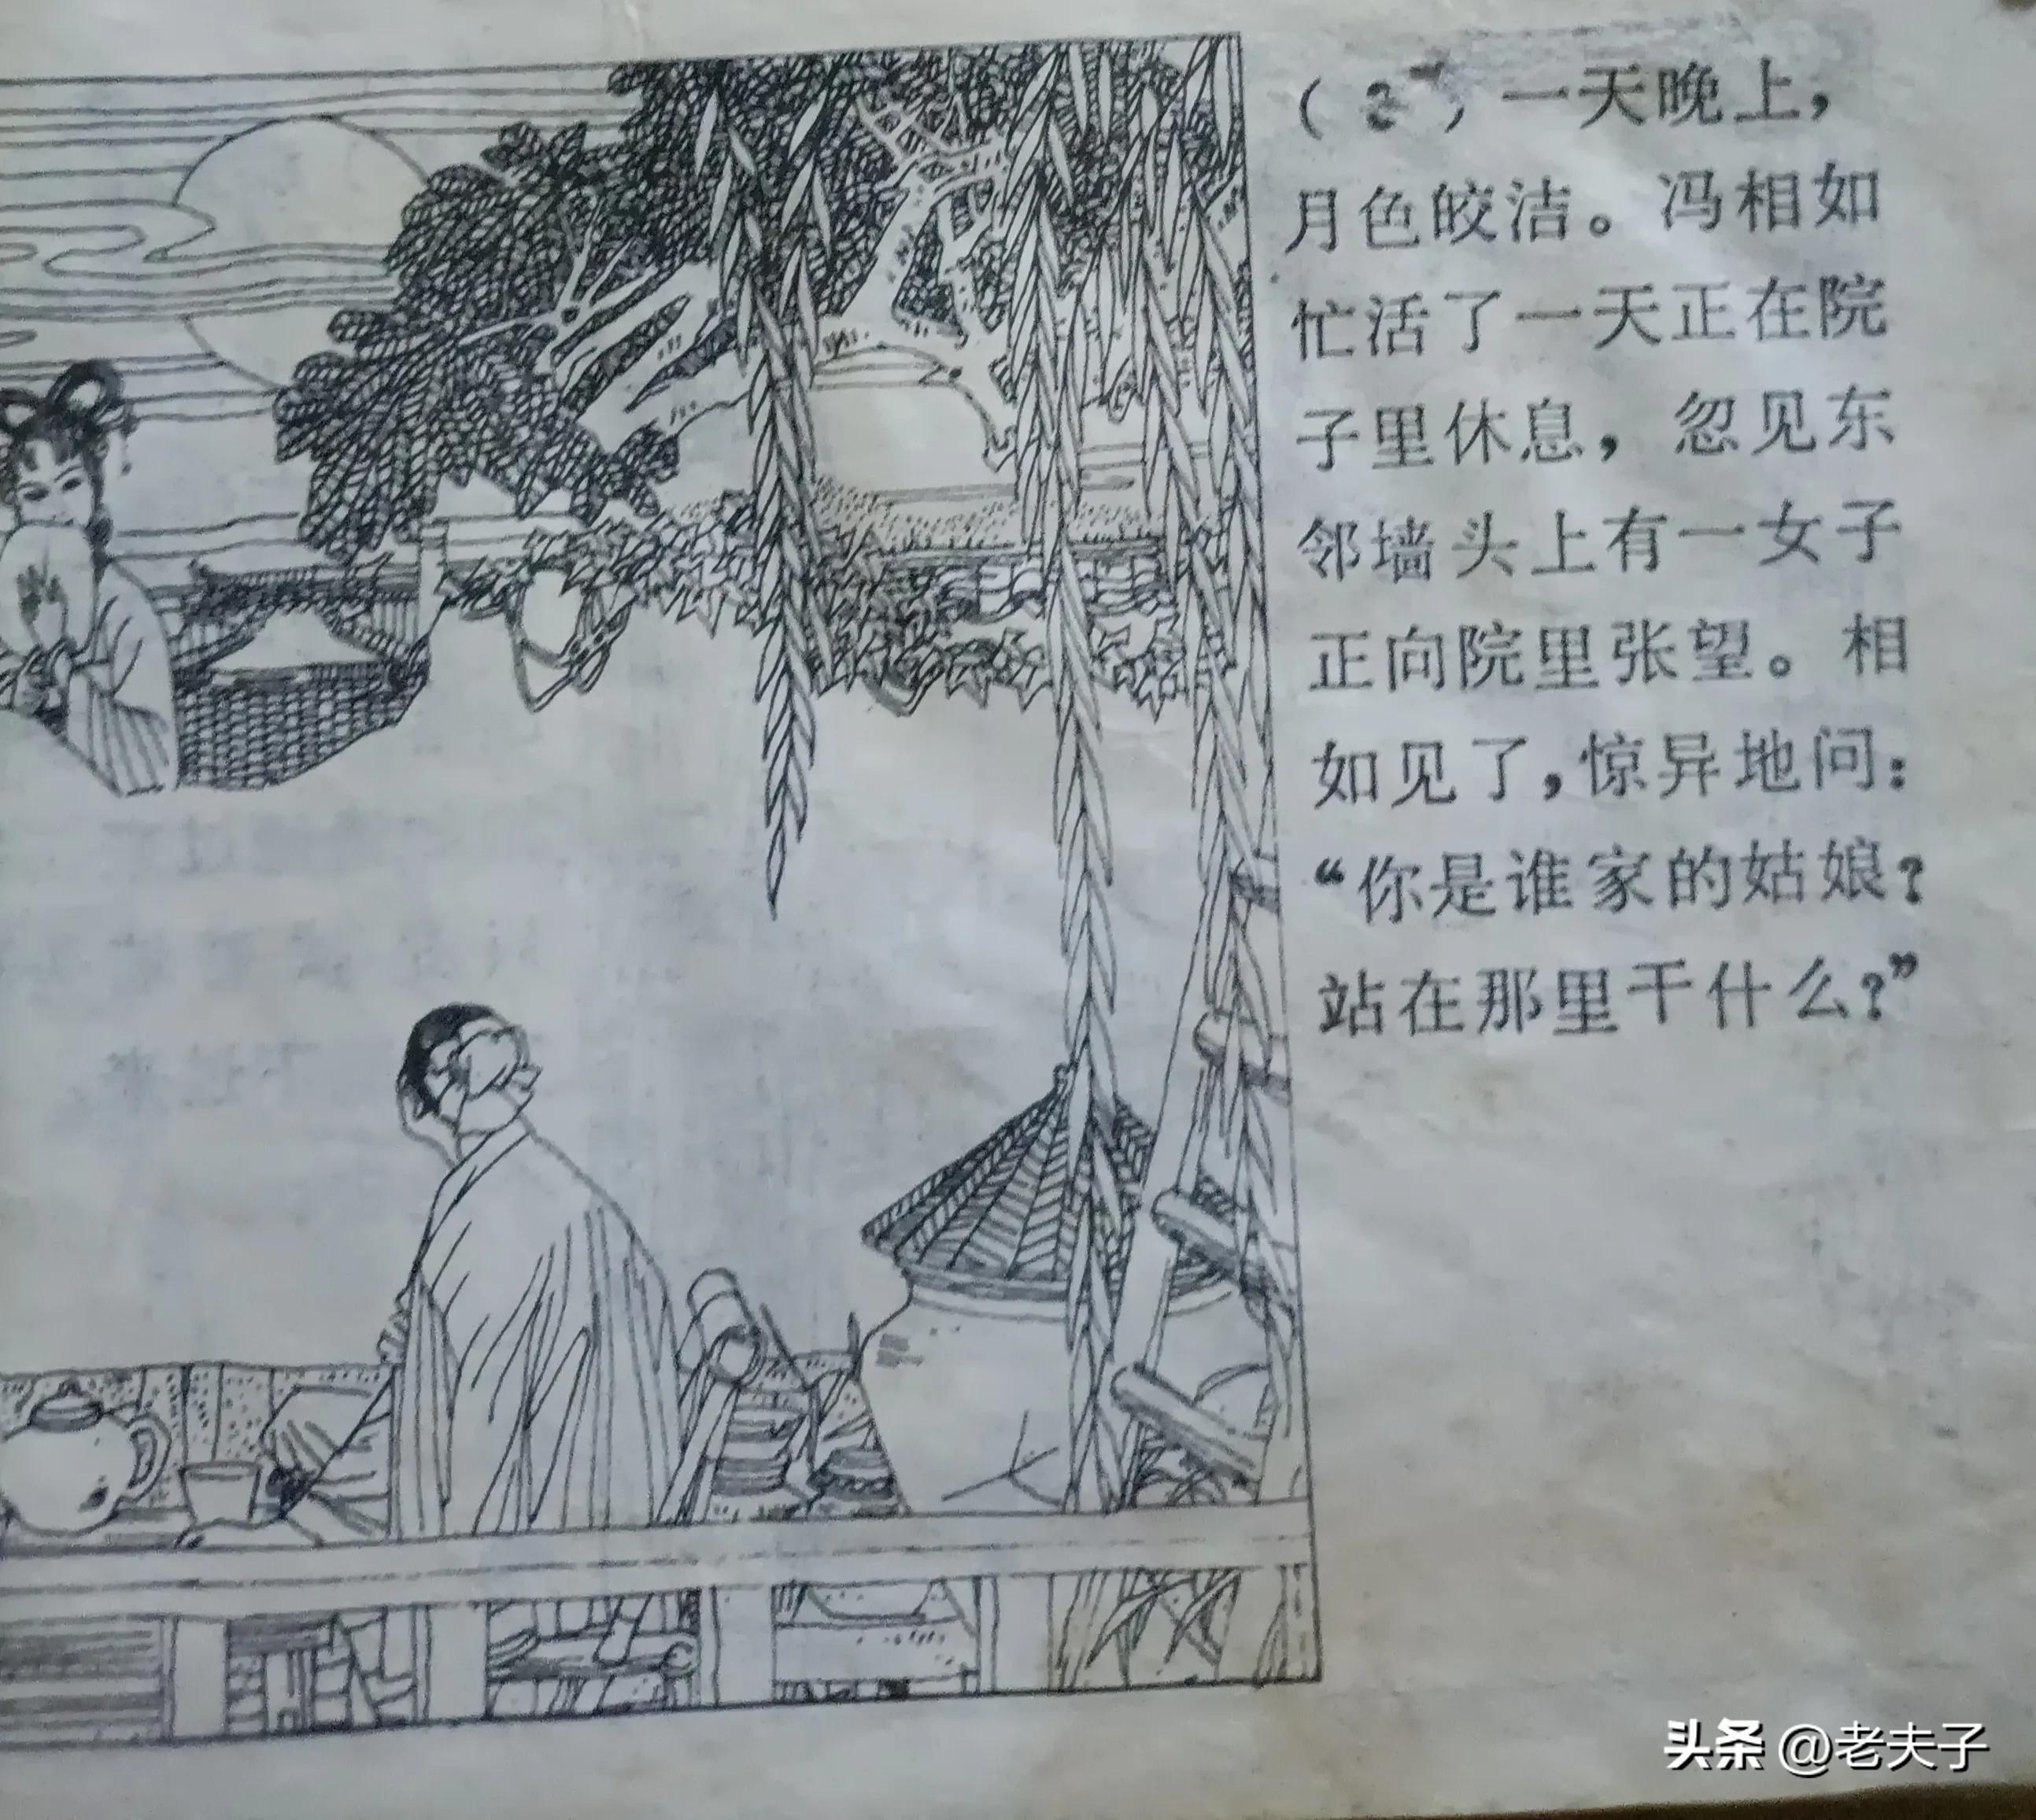 （2）一天晚上，
月色皎洁。冯相如
忙活了一天正在院
子里休息，忽见东
邻墙头上有一女子
正向院里张望。相
如见了，惊异地问：
“你是谁家的姑娘？
站在那里干什么？”
头条 @老夫子